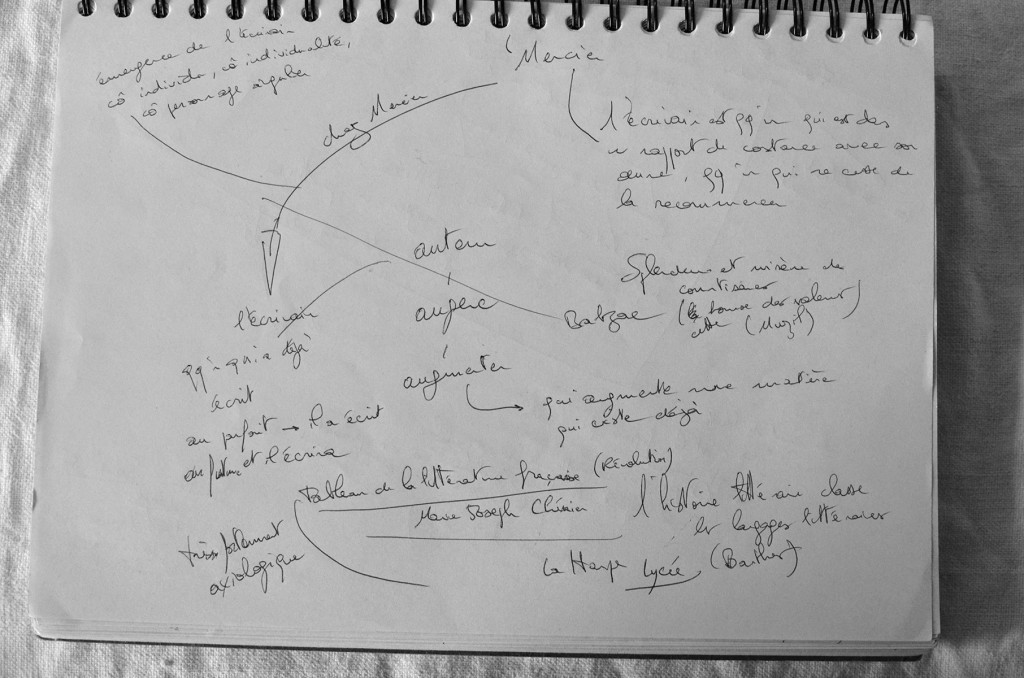 émergence de l'écrivain
cô individu, cô individualité,
cô personnage singulier
Mercier
chez Mercier
l'écrivain est qq'un qui est ds
un rapport de constance avec son
œuvre, qq'un qui ne cesse de
la recommencer
auteur
augere
augmenter
qui augmente une matière
qui existe déjà
Splendeurs et misère de
courtisanes
Balzac
(la bourse des valeurs)
cette
l'écrivain
qq'un qui a déjà
écrit
au parfait → il a écrit
au futur et l'écrira
Tableau de la littérature française (Révolution)
Marie Joseph Chénier
l'histoire littéraire classe
les langages littéraires
La Harpe Lycée (Barthes)
très fortement
axiologique